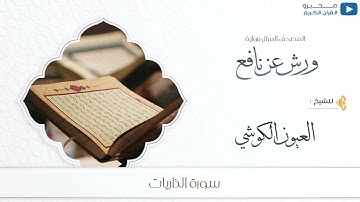 محبرو
القرآن الكريم
المصحف المرتل برواية
ورش عن نافع
للشيخ :
العيون الكوشي
سورة الذاريات